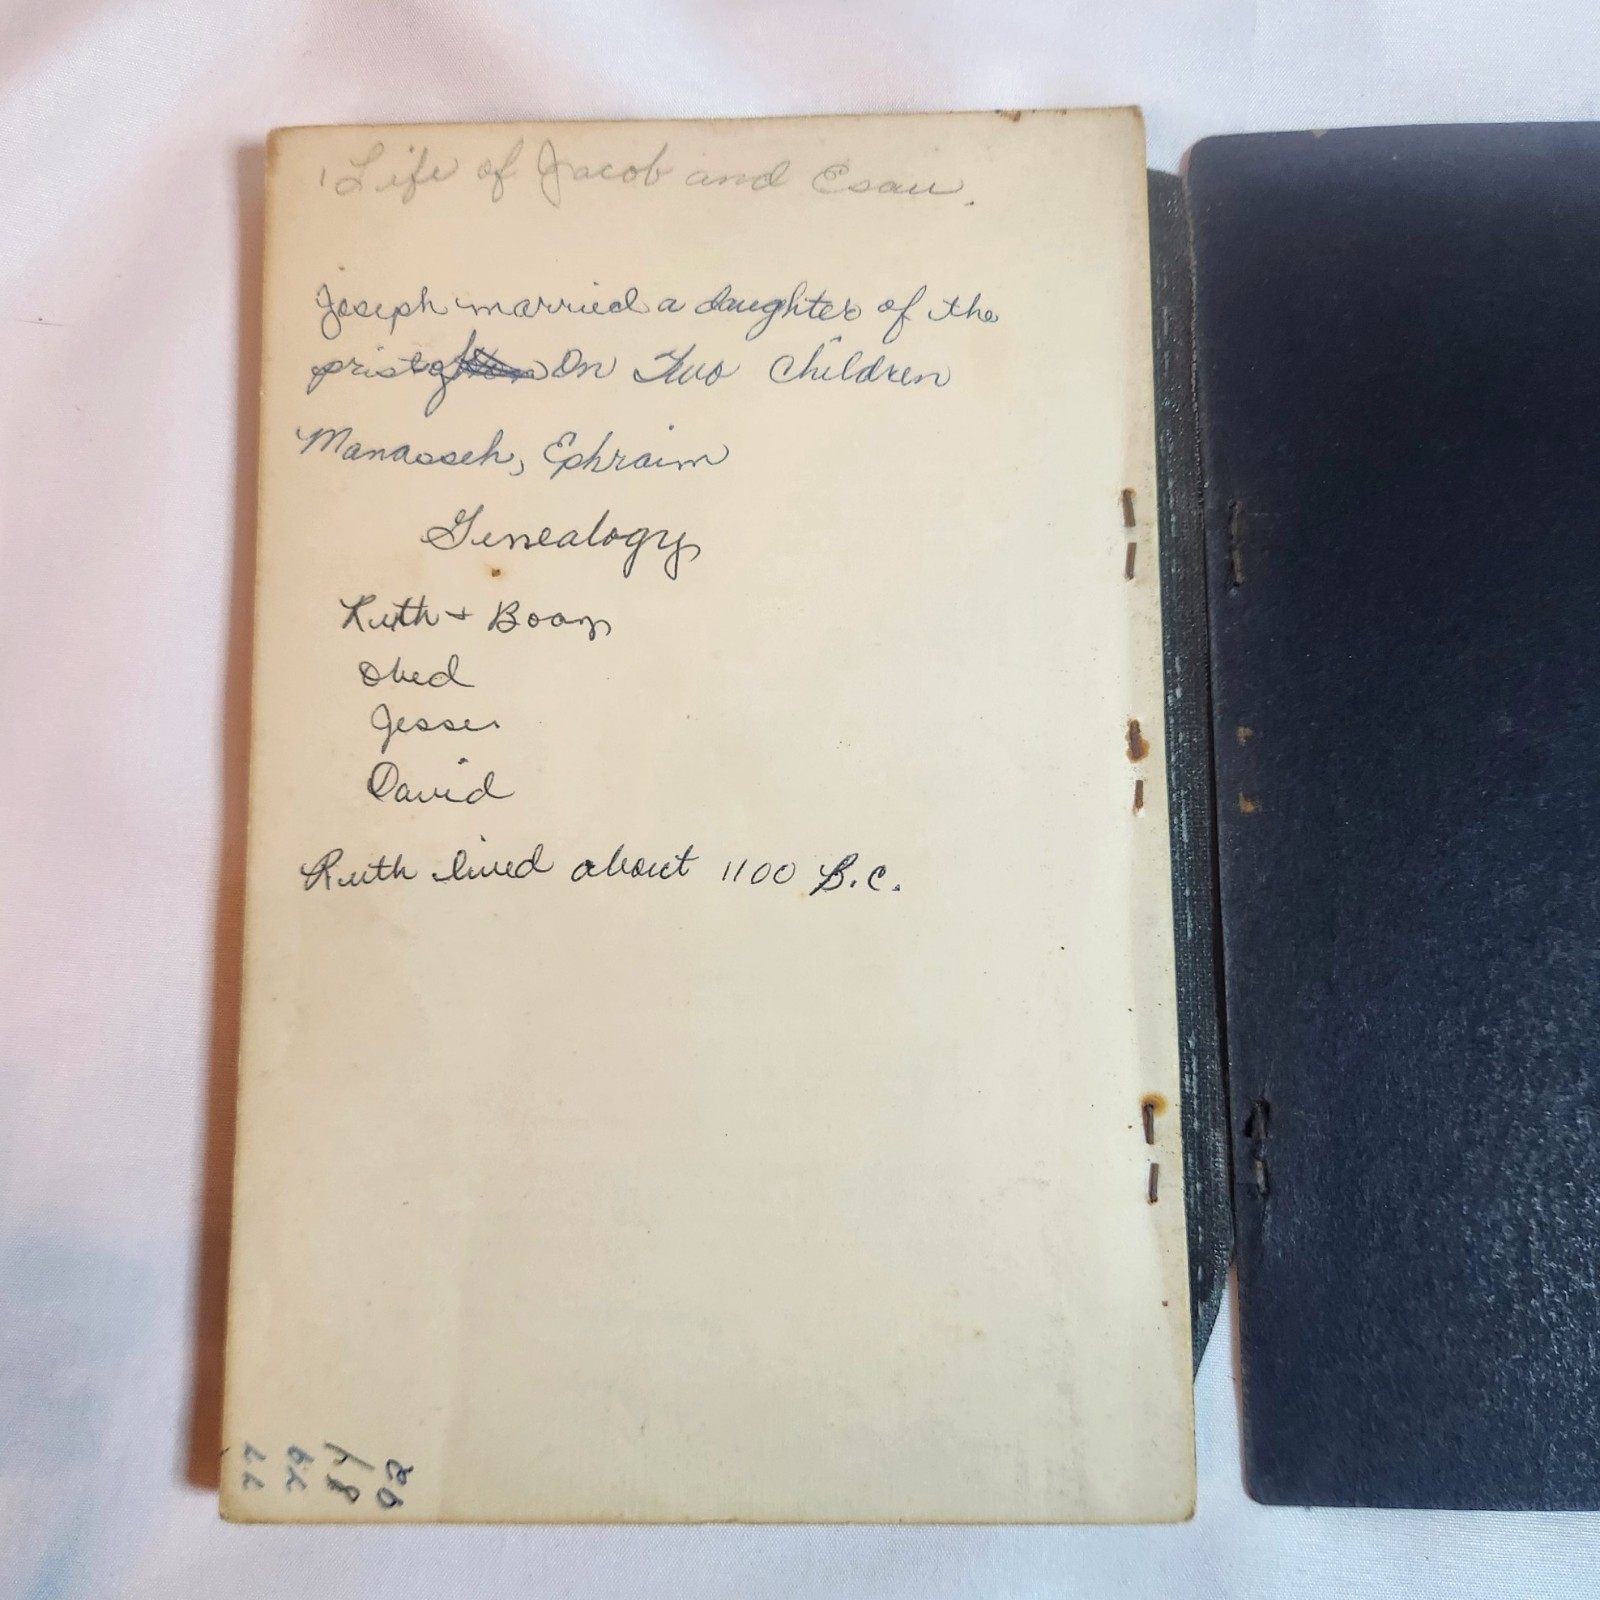 Life of Jacob and Esau.
Joseph married a daughter of the
prist of On Two Children
Manasseh, Ephraim
Genealogy
Ruth + Boaz
Obed
Jesse
David
Ruth lived about 1100 B.C.
77
79
84
92